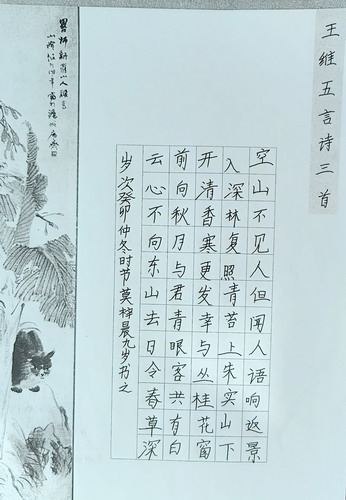 王维五言诗三首
空山不见人但闻人语响返景
入深林复照青苔上朱实山下
开清香寒更发幸与丛桂花窗
前向秋月与君青眼客共有白
云心不向东山去日令春草深
岁次癸卯仲冬时节莫梓晨九岁书之